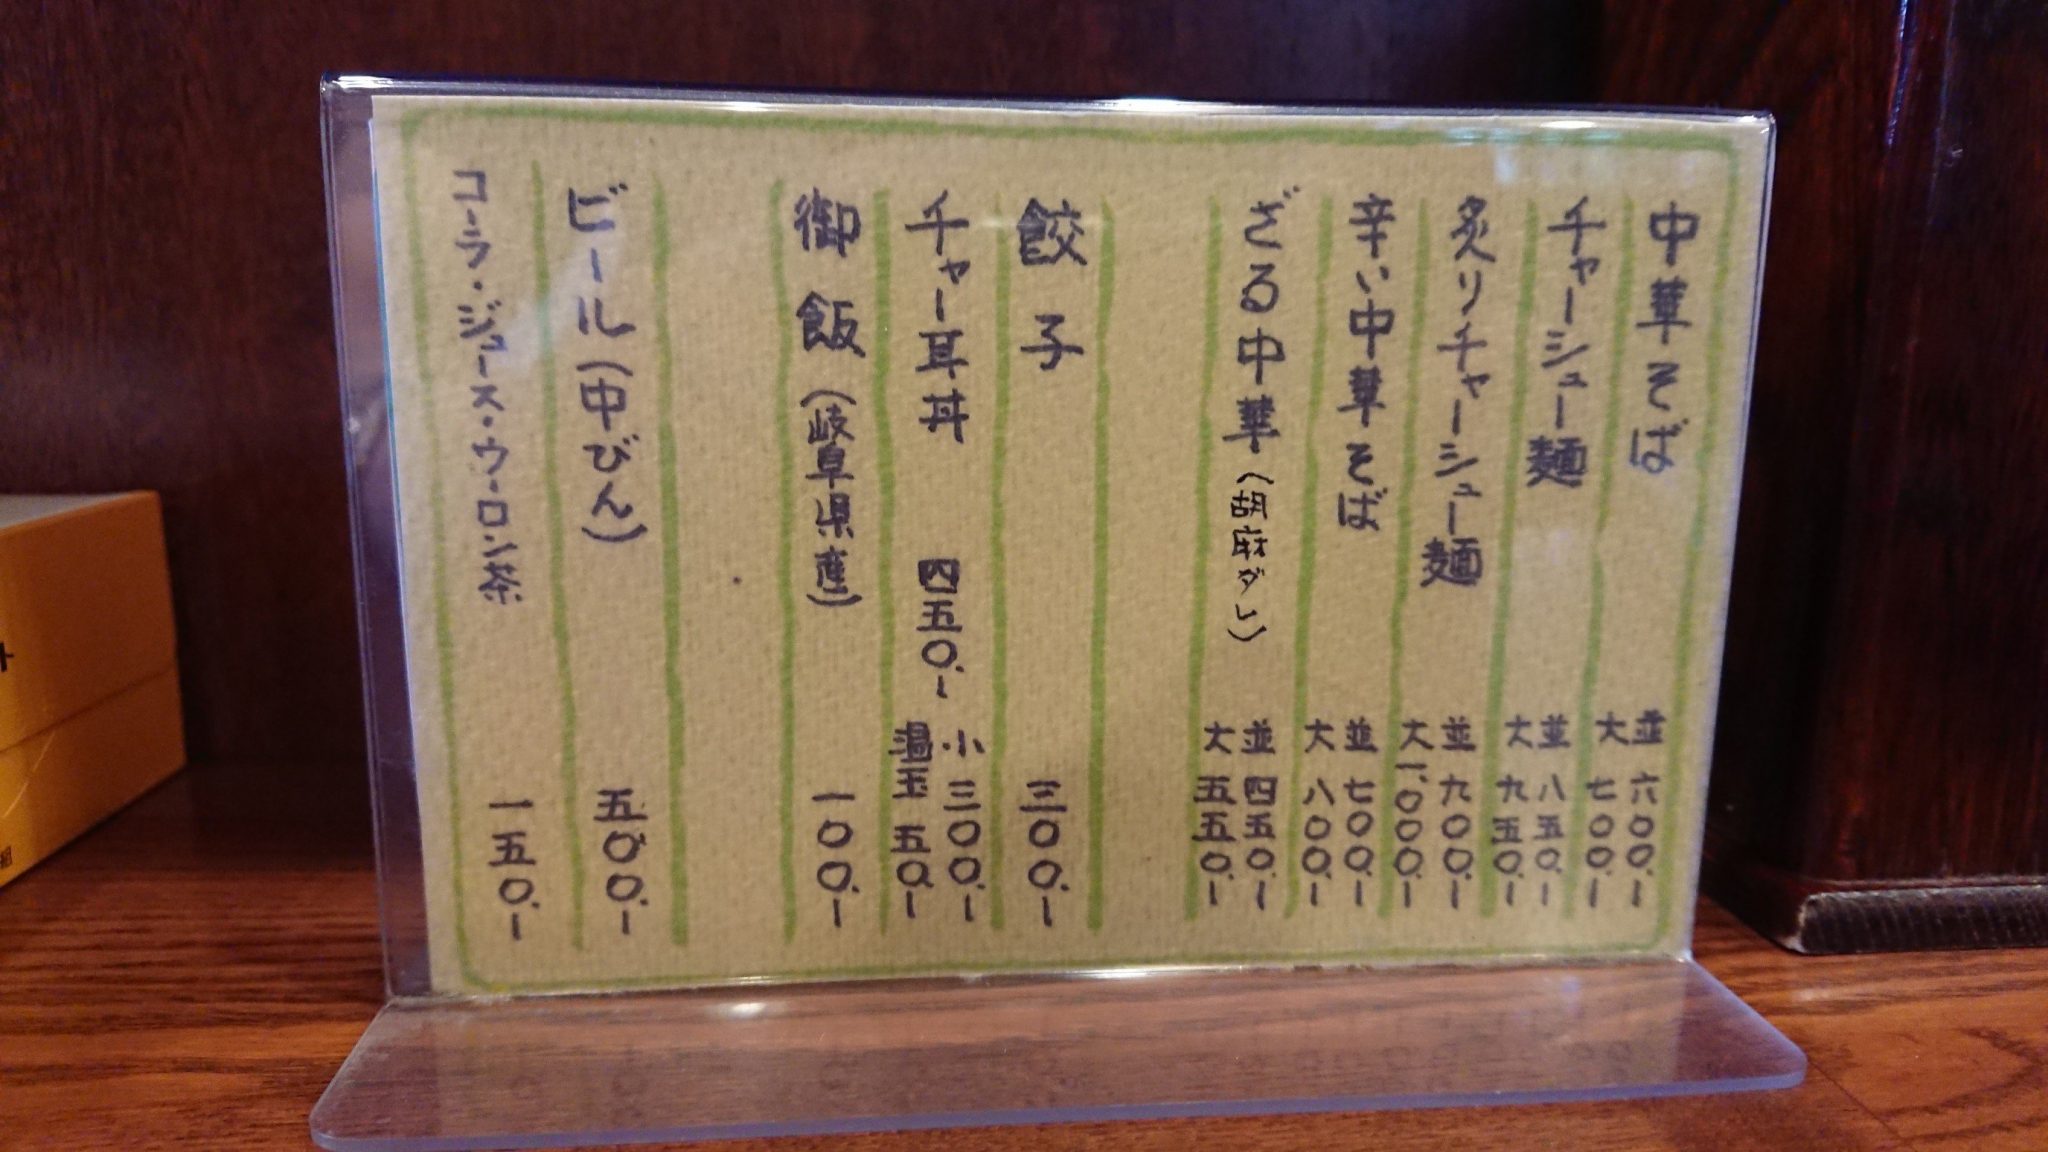 中華そば 並 六〇〇.-
大 七〇〇.-
チャーシュー麺 並 八五〇.-
大 九五〇.-
炙りチャーシュー麺 並 九〇〇.-
大 一、〇〇〇.-
辛い中華そば 並 七〇〇.-
大 八〇〇.-
ざる中華(胡麻ダレ) 並 四五〇.-
大 五五〇.-
餃子 三〇〇.-
チャー耳丼 四五〇.- 小 三〇〇.-
温玉 五〇.-
御飯(岐阜県産) 一〇〇.-
ビール(中びん) 五〇〇.-
コーラ・ジュース・ウーロン茶 一五〇.-
ト
組